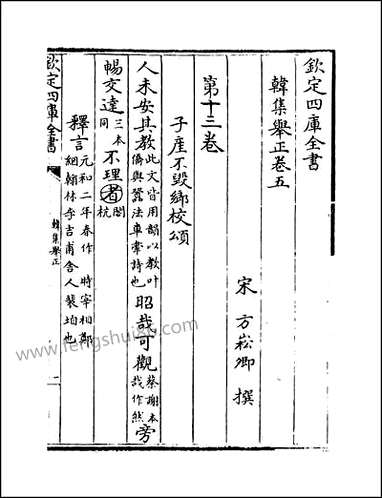 欽定四庫全書
韓集舉正卷五
宋 方崧卿 撰
第十三卷
子產不毀鄉校頌
人未安其教此文皆用韻以教叶
僑與蠶法車舝詩也昭哉可觀蔡謝本
哉作然旁
暢交達三本
同不理者閣
杭
釋言元和二年春作 時宰相鄭
絪翰林李吉甫舍人裴垍也
欽定四庫全書
韓集舉正
一
www.fengshui86.com